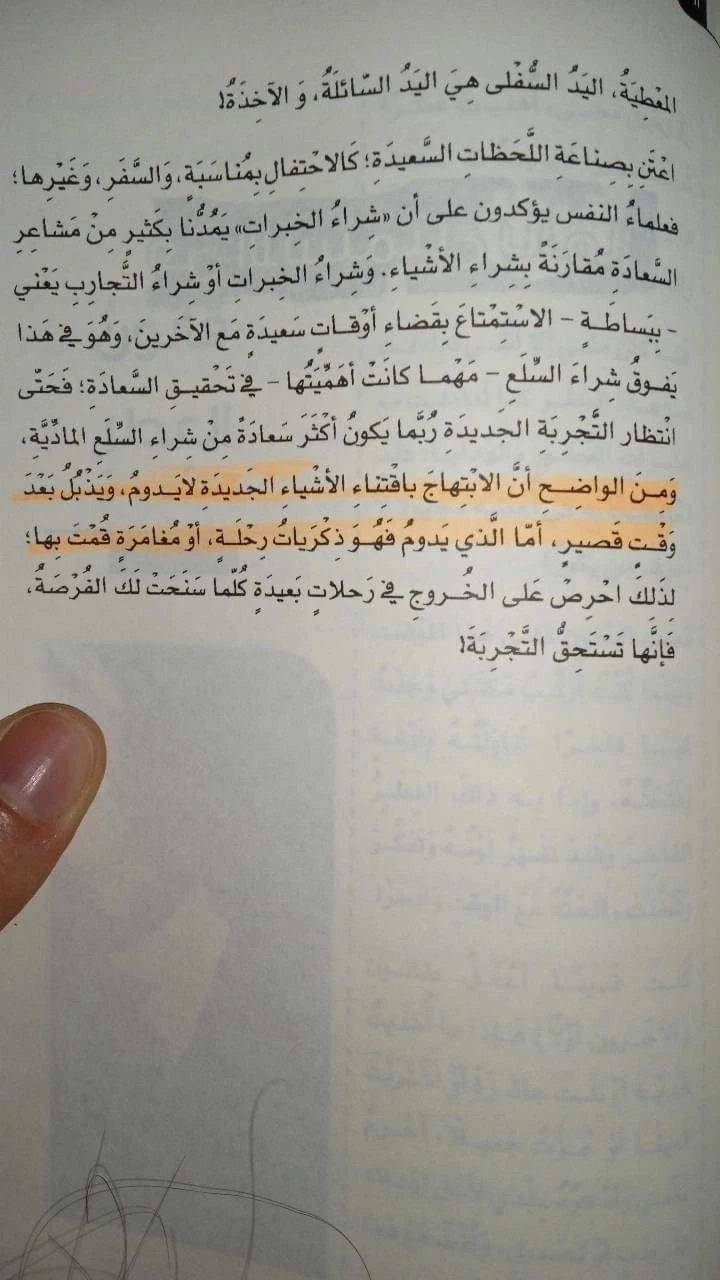 المُعْطِيَةُ، اليَدُ السُّفْلى هِيَ اليَدُ السّائلَةُ، وَ الآخِذَةُ!
اعْتَنِ بِصِناعَةِ اللَّحَظاتِ السَّعيدَةِ؛ كَالاحْتِفالِ بِمُناسَبَةٍ، وَالسَّفَرِ، وَغَيْرِها؛
فعلماءُ النفس يؤكدون على أن «شِراءَ الخِبراتِ» يَمُدُّنا بِكَثيرٍ مِنْ مَشاعِرِ
السَّعادَةِ مُقارَنَةً بِشِراءِ الأشْياءِ. وَشِراءُ الخِبراتِ أوْ شِراءُ التَّجارِبِ يَعْني
- بِبَساطَةٍ - الاسْتِمْتاعَ بِقَضاءِ أوْقاتٍ سَعيدَةٍ مَع الآخَرينَ، وَهُوَ في هَذا
يَفوقُ شِراءَ السِّلَعِ - مَهْما كانَتْ أهَمِّيَتُها - في تَحْقيقِ السَّعادَةِ؛ فَحَتّى
انْتظار التَّجْرِبَةِ الجَديدَةِ رُبَّما يَكونُ أكْثَرَ سَعادَةً مِنْ شِراءِ السِّلَعِ المادِّيَّةِ،
وَمِنَ الواضِحِ أنَّ الابْتِهاجَ باقْتِناءِ الأشْياءِ الجَديدَةِ لايَدومُ، وَيَذْبُلُ بَعْدَ
وَقْتٍ قَصيرٍ، أمّا الَّذي يَدومُ فَهُوَ ذِكْرَياتُ رِحْلَةٍ، أوْ مُغامَرَةٍ قُمْتَ بِها؛
لِذَلِكَ احْرِصْ عَلى الخُروجِ في رَحلاتٍ بَعيدَةٍ كُلَّما سَنَحَتْ لَكَ الفُرْصَةُ،
فَإنَّها تَسْتَحِقُّ التَّجْرِبَةَ!